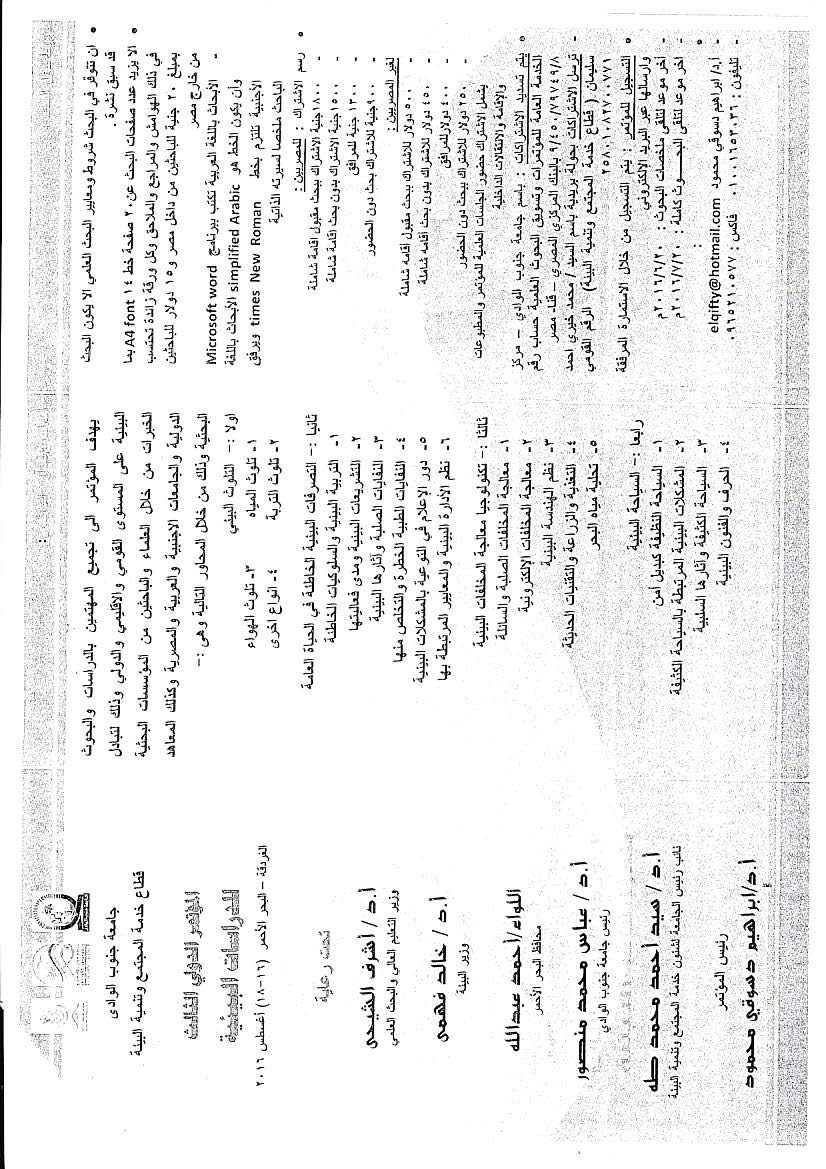 جامعة جنوب الوادى
قطاع خدمة المجتمع وتنمية البيئة
المؤتمر الدولي الثالث
الدراسات البيئية
الغردقة – البحر الأحمر (١٦–١٨) أغسطس ٢٠١٦
تحت رعاية
أ.د/ أشرف الشيحى
وزير التعليم العالى والبحث العلمي
أ.د/ خالد فهمى
وزير البيئة
اللواء/ أحمد عبدالله
محافظ البحر الأحمر
أ.د/ عباس محمد منصور
رئيس جامعة جنوب الوادى
أ.د/ سيد احمد محمد طه
نائب رئيس الجامعة لشئون خدمة المجتمع وتنمية البيئة
رئيس المؤتمر
أ.د/ابراهيم دسوقي محمود
يهدف المؤتمر الى تجميع المهتمين بالدراسات والبحوث
البيئية على المستوى القومي والاقليمي والدولي وذلك لتبادل
الخبرات من خلال العلماء والباحثين من المؤسسات البحثية
الدولية والجامعات الاجنبية والعربية والمصرية وكذلك المعاهد
البحثية وذلك من خلال المحاور التالية وهى :-
اولا :- التلوث البيئي
١- تلوث المياه ٣- تلوث الهواء
٢- تلوث التربة ٤- انواع اخرى
ثانيا :- التصرفات البيئية الخاطئة في الحياة العامة
١- التربية البيئية والسلوكيات الخاطئة
٢- التشريعات البيئية ومدى فعاليتها
٣- النفايات الصلبة وآثارها البيئية
٤- النفايات الطبية الخطرة والتخلص منها
٥- دور الإعلام في التوعية بالمشكلات البيئية
٦- نظم الأدارة البيئية والمعايير المرتبطة بها
ثالثا :- تكنولوجيا معالجة المخلفات البيئية
١- معالجة المخلفات الصلبة والسائلة
٢- معالجة المخلفات الالكترونية
٣- نظم الهندسة البيئية
٤- التغذية والزراعة والتقنيات الحديثة
٥- تحلية مياه البحر
رابعا :- السياحة البيئية
١- السياحة النظيفة كبديل آمن
٢- المشكلات البيئية المرتبطة بالسياحة الكثيفة
٣- السياحة الكثيفة وآثارها السلبية
٤- الحرف والفنون البيئية
ان تتوفر في البحث شروط ومعايير البحث العلمي الا يكون البحث
قد سبق نشرة .
الا يزيد عدد صفحات البحث عن ٢٠ صفحة خط ١٤ A4 font بما
في ذلك الهوامش والمراجع والملاحق وكل ورقة زائدة تحتسب
بمبلغ ٢٠ جنية للباحثين من داخل مصر و ١٥ دولار للباحثين
من خارج مصر
- الأبحاث باللغة العربية تكتب ببرنامج Microsoft word
وأن يكون الخط هو simplified Arabic الأبحاث باللغة
الأجنبية تلتزم بخط times New Roman ويرفق
الباحث ملخصا لسيرته الذاتية
رسم الاشتراك : للمصريين :
- ١٨٠٠ جنية الاشتراك ببحث مقبول اقامة شاملة
- ١٥٠٠ جنية الاشتراك بدون بحث اقامة شاملة
- ١٣٠٠ جنية للمرافق
- ٩٠٠ جنية للاشتراك بحث دون الحضور
لغير المصريين :
- ٥٠٠ دولار للاشتراك ببحث مقبول اقامه شاملة
- ٤٥٠ دولار للاشتراك بدون بحث اقامة شاملة
- ٤٠٠ دولار للمرافق
- ٢٥٠ دولار للاشتراك ببحث دون الحضور
يشمل الاشتراك حضور الجلسات العلمية للمؤتمر والمطبوعات
والاقامة والانتقالات الداخلية
يتم تسديد الاشتراكات : باسم جامعة جنوب الوادي – مركز
الخدمة العامة للمؤتمرات وتسويق البحوث العلمية حساب رقم
٩/٤٥٠/٧٩٧٤٩/٨ بالبنك المركزي المصري – قنا- مصر
ترسل الاشتراكات بحولة بريدية باسم السيد / محمد خيري احمد
سليمان ( قطاع خدمة المجتمع وتنمية البيئة ) الرقم القومى
٢٥٨٠١٠٨٢٧٠٠٧٧١
التسجيل للمؤتمر : يتم التسجيل من خلال الاستمارة المرفقة
وارسالها عبر البريد الإلكترونى
- آخر موعد لتلقى ملخصات البحوث : ٢٠١٦/٦/٢٠م
- آخر موعد لتلقى البحوث كاملة : ٢٠١٦/٧/٢٠م
- أ.د/ ابراهيم دسوقى محمود elqifty@hotmail.com
- تليفون : ٠١٠٠١٦٥٣٠٣٦ فاكس : ٠٩٦٥٢١٠٥٧٧